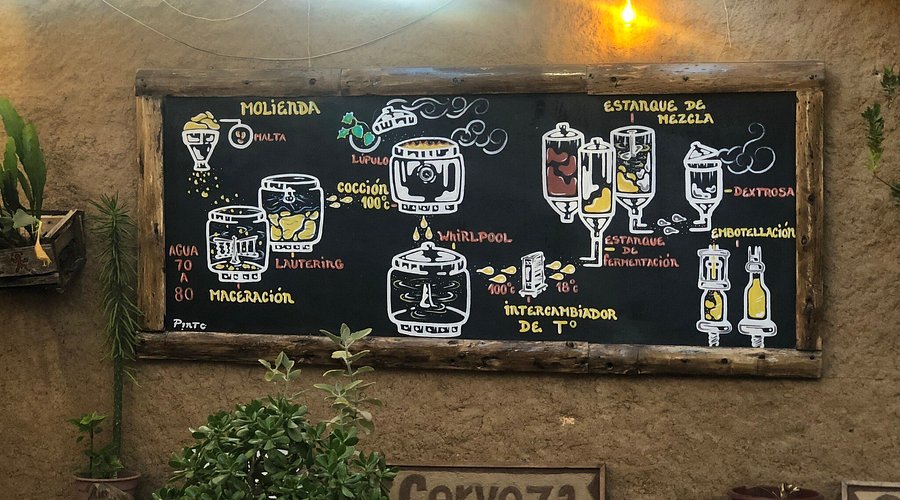 MOLIENDA
MALTA
AGUA
70
A
80
MACERACIÓN
LAUTERING
LÚPULO
COCCIÓN
100°C
WHIRLPOOL
100°C
18°C
INTERCAMBIADOR
DE T°
ESTANQUE DE
MEZCLA
ESTANQUE
DE
FERMENTACIÓN
DEXTROSA
EMBOTELLACIÓN
PINTO
Cerveza